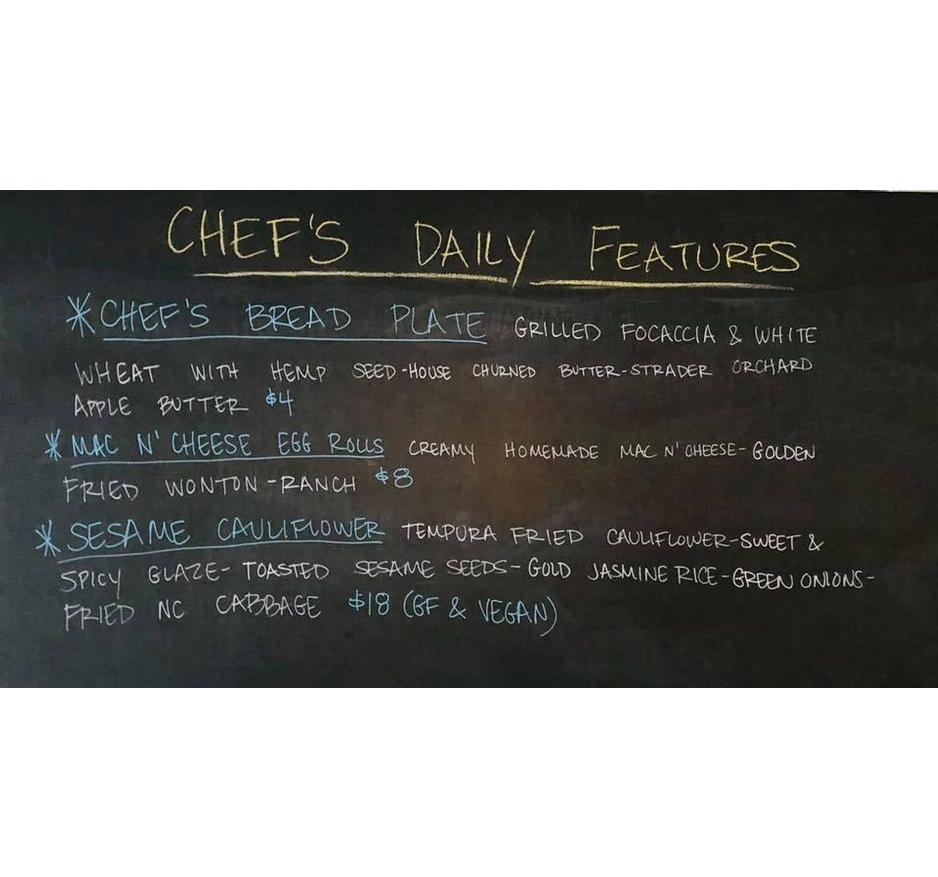 CHEF'S DAILY FEATURES
*CHEF'S BREAD PLATE GRILLED FOCACCIA & WHITE
WHEAT WITH HEMP SEED-HOUSE CHURNED BUTTER-STRADER ORCHARD
APPLE BUTTER $4
*MAC N' CHEESE EGG ROLLS CREAMY HOMEMADE MAC N' CHEESE-GOLDEN
FRIED WONTON-RANCH $8
*SESAME CAULIFLOWER TEMPURA FRIED CAULIFLOWER-SWEET &
SPICY GLAZE-TOASTED SESAME SEEDS-GOLD JASMINE RICE-GREEN ONIONS-
FRIED NC CABBAGE $18 (GF & VEGAN)